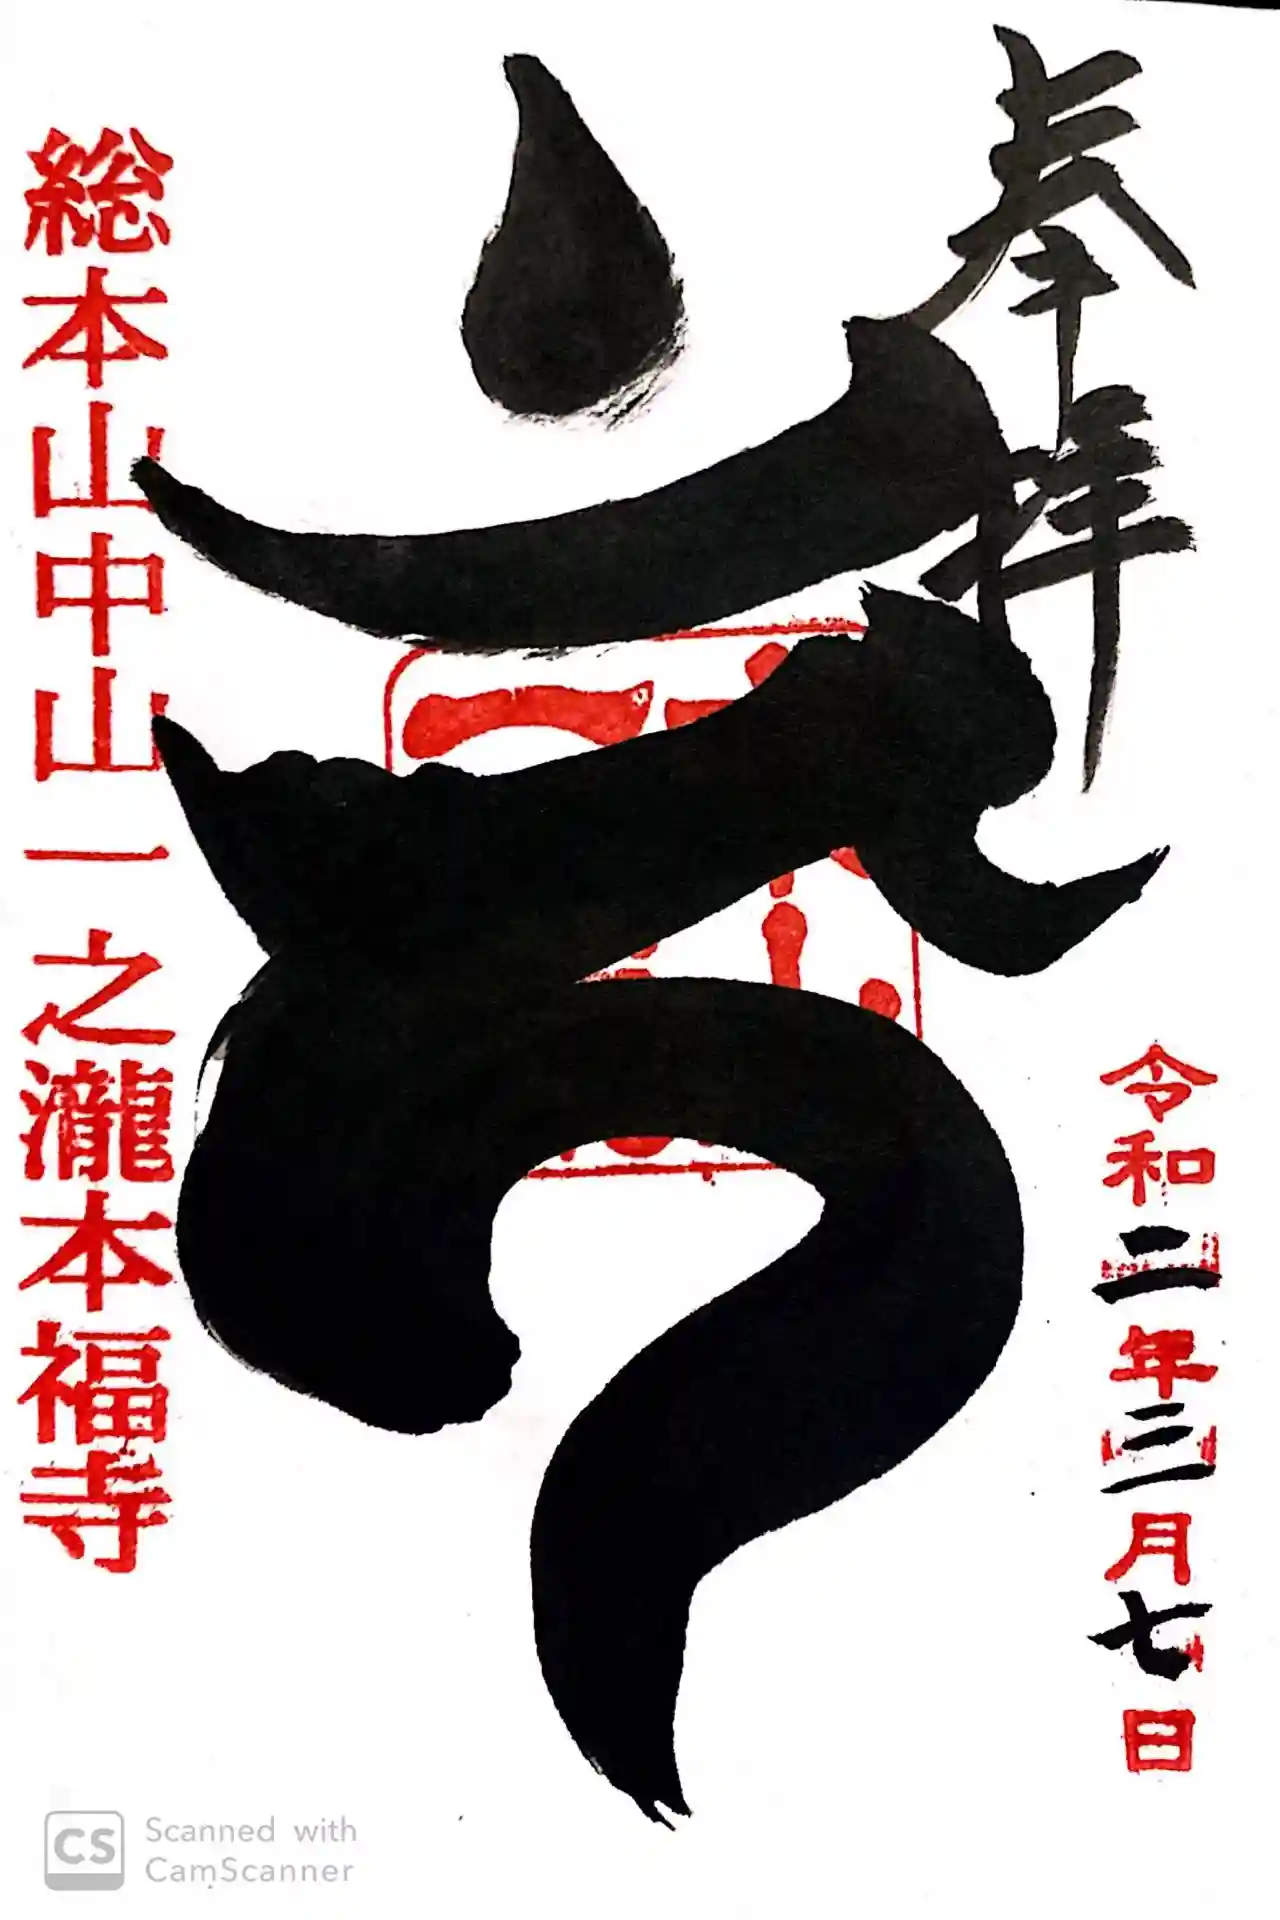 奉拝
令和二年三月七日
総本山中山一之瀧本福寺
Scanned with
CamScanner